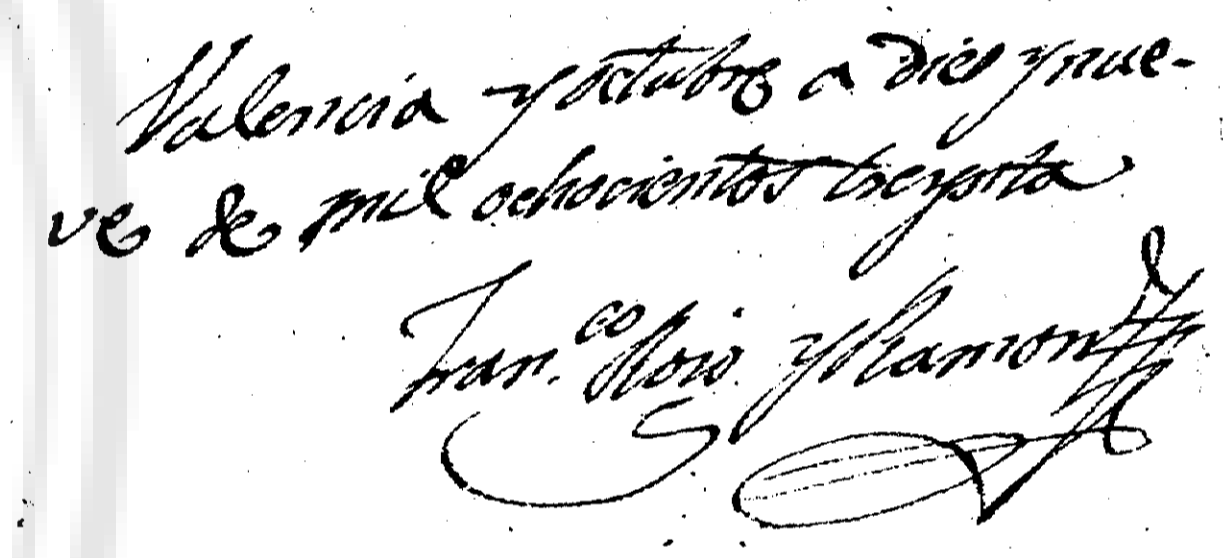 Valencia y octubre a dies y nue-
ve de mil ochocientos treynta
Fran.co Roio y Ramon